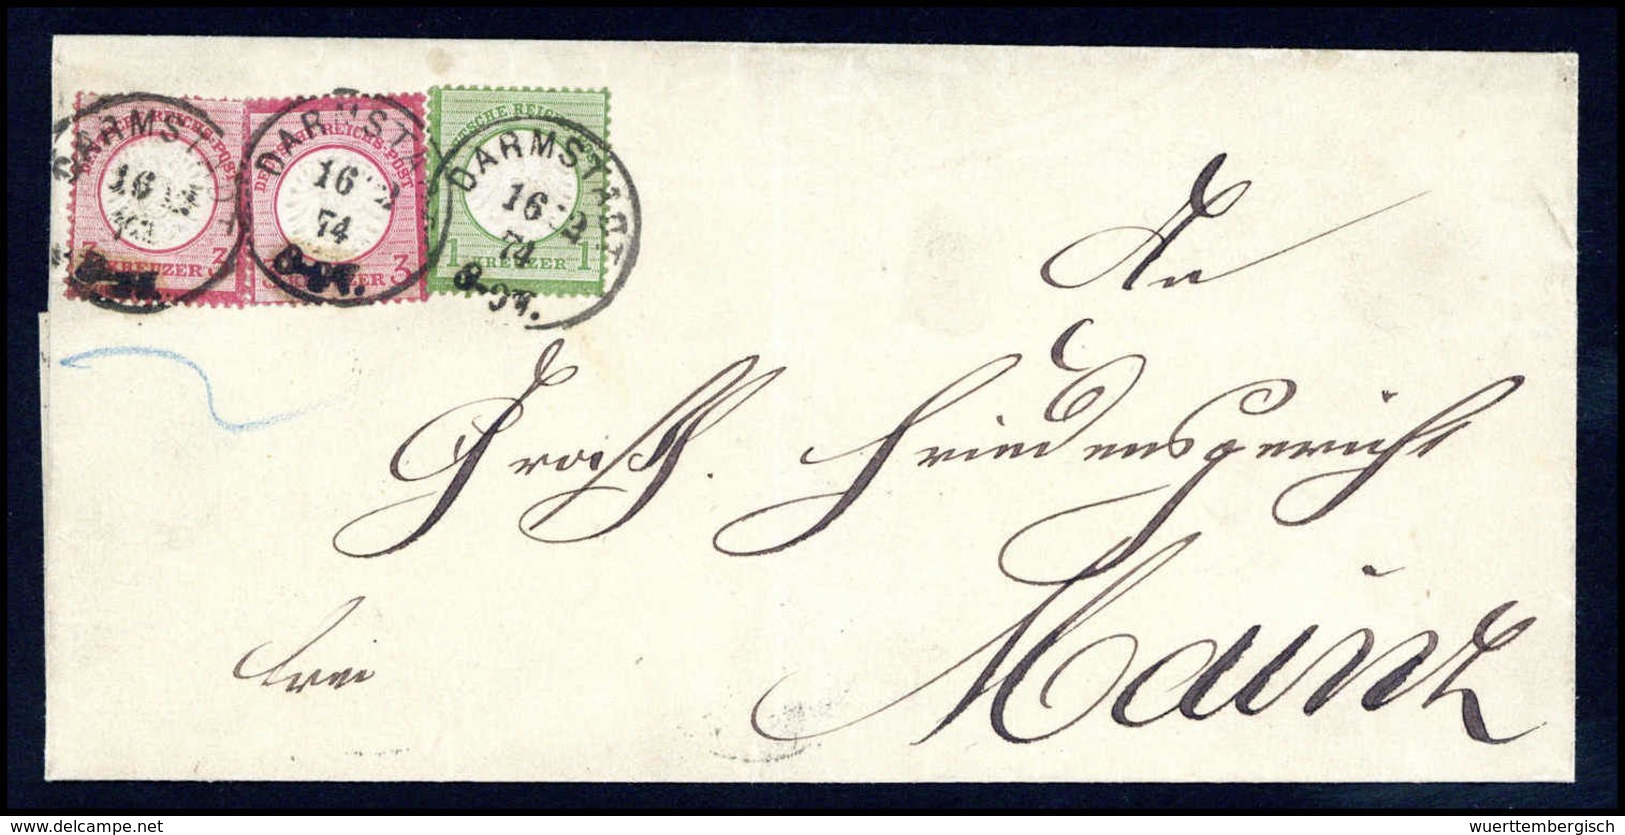 DEUTSCHE REICHS-POST
3 KREUZER 3
DEUTSCHE REICHS-POST
3 KREUZER 3
DEUTSCHE REICHS-POST
1 KREUZER 1
DARMSTADT
16
DARMSTADT
16 2
74
DARMSTADT
16 2
74
8-9N.
An
Großh. Friedensgericht
Mainz
frei
www.delcampe.net
wuerttembergisch